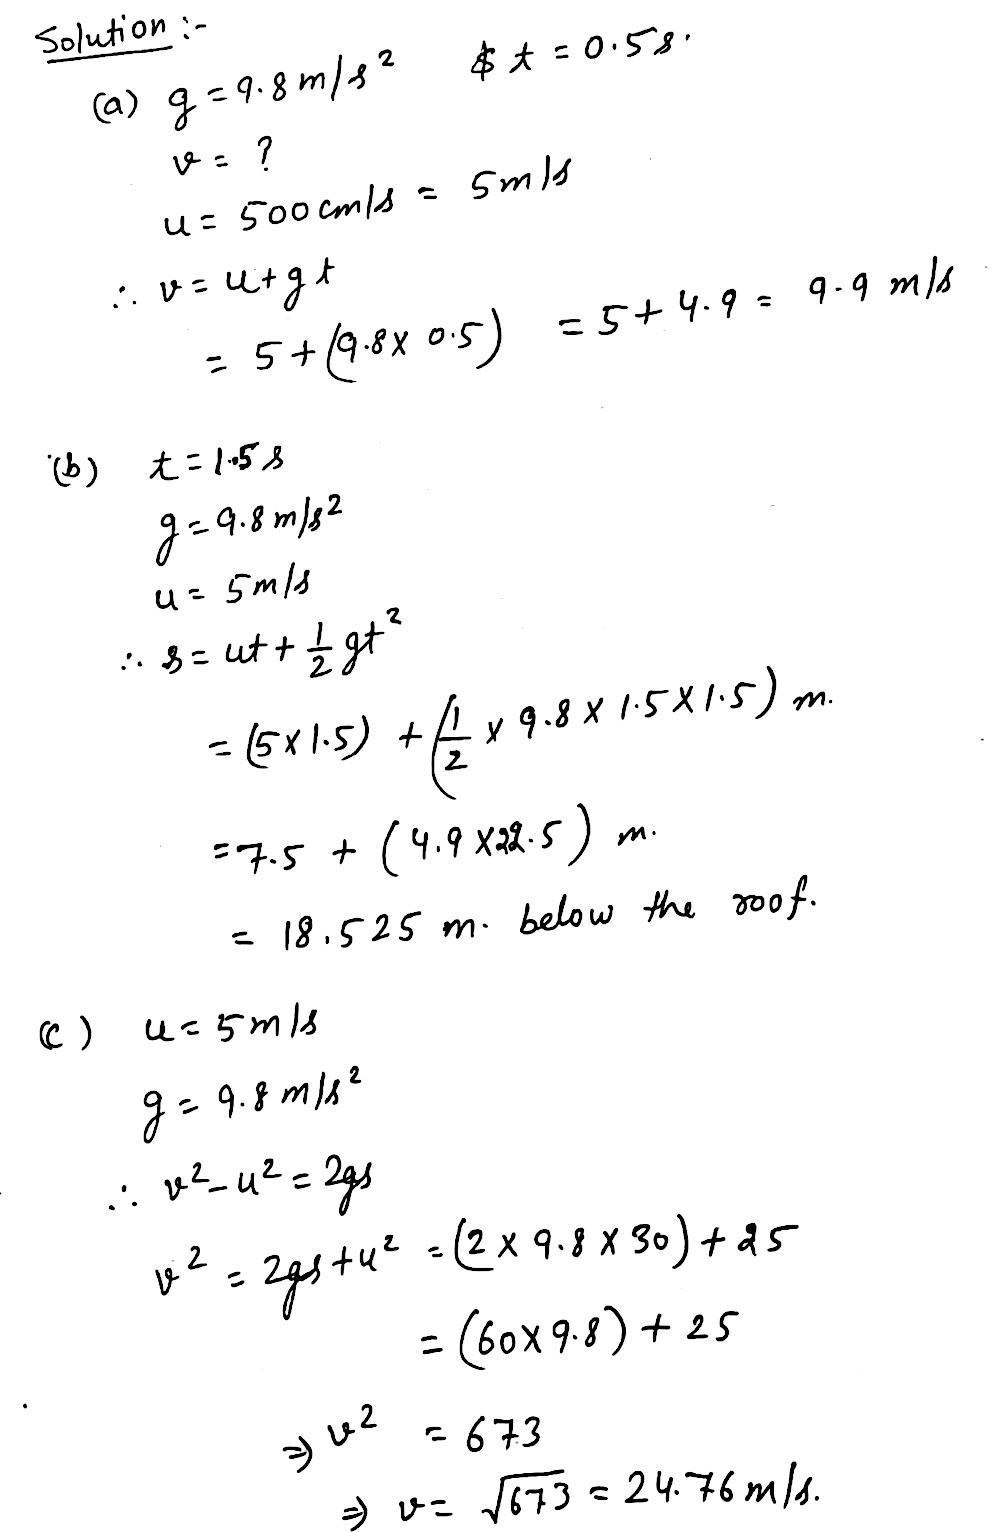 Solution :-
(a) g = 9.8 m/s² & t = 0.5 s.
v = ?
u = 500 cm/s = 5 m/s
∴ v = u + gt
= 5 + (9.8 x 0.5) = 5 + 4.9 = 9.9 m/s
(b) t = 1.5 s
g = 9.8 m/s²
u = 5 m/s
∴ s = ut + 1/2 gt²
= (5 x 1.5) + (1/2 x 9.8 x 1.5 x 1.5) m.
= 7.5 + (4.9 x 22.5) m.
= 18.525 m. below the roof.
(c) u = 5 m/s
g = 9.8 m/s²
∴ v² - u² = 2gs
v² = 2gs + u² = (2 x 9.8 x 30) + 25
= (60 x 9.8) + 25
⇒ v² = 673
⇒ v = √673 = 24.76 m/s.